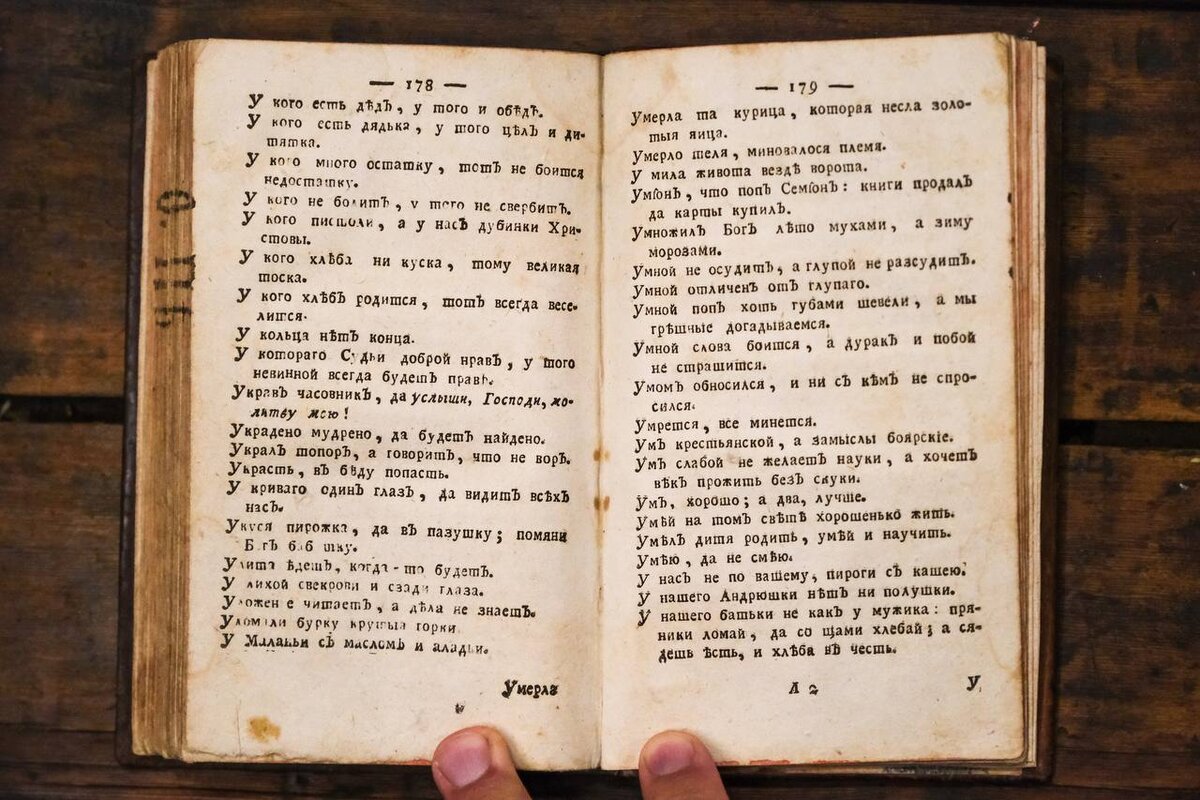 — 178 —
У кого есть дѣдъ, у того и обѣдъ.
У кого есть дядька, у того цѣлъ и ди-
тятка.
У кого много остатку, тотъ не боится
недостатку.
У кого не болитъ, у того не свербитъ.
У кого пистоли, а у насъ дубинки Хри-
стовы.
У кого хлѣба ни куска, тому великая
тоска.
У кого хлѣбъ родится, тотъ всегда весе-
лится.
У кольца нѣтъ конца.
У котораго Судьи доброй нравъ, у того
невинной всегда будетъ правъ.
Укравъ часовникъ, да услыши, Господи, мо-
литву мою!
Украдено мудрено, да будетъ найдено.
Укралъ топоръ, а говоритъ, что не воръ.
Украсть, въ бѣду попасть.
У криваго одинъ глазъ, да видитъ всѣхъ
насъ.
Укуся пирожка, да въ пазушку; помяни
Богъ бабушку.
Улита ѣдетъ, когда-то будетъ.
У лихой свекрови и сзади глаза.
Уложенье читаетъ, а дѣла не знаетъ.
Уломали бурку крутыя горки.
У Маланьи съ масломъ и аладьи.
Умерла
— 179 —
Умерла та курица, которая несла золо-
тыя яица.
Умерло теля, миновалося племя.
У мила живота вездѣ ворота.
Умӏонъ, что попъ Семӏонъ: книги продалъ
да карты купилъ.
Умножилъ Богъ лѣто мухами, а зиму
морозами.
Умной не осудитъ, а глупой не разсудитъ.
Умной отличенъ отъ глупаго.
Умной попъ хоть губами шевели, а мы
грѣшные догадываемся.
Умной слова боится, а дуракъ и побой
не страшится.
Умомъ обносился, и ни съ кѣмъ не спро-
сился.
Умрется, все минется.
Умъ крестьянской, а замыслы боярскіе.
Умъ слабой не желаетъ науки, а хочетъ
вѣкъ прожить безъ скуки.
Умъ, хорошо; а два, лучше.
Умѣй на томъ свѣтѣ хорошенько жить.
Умѣлъ дитя родить, умѣй и научить.
Умѣю, да не смѣю.
У насъ не по вашему, пироги съ кашею.
У нашего Андрюшки нѣтъ ни полушки.
У нашего батьки не какъ у мужика: пря-
ники ломай, да со щами хлебай; а ся-
дешь ѣсть, и хлѣба въ честь.
Л 2
У